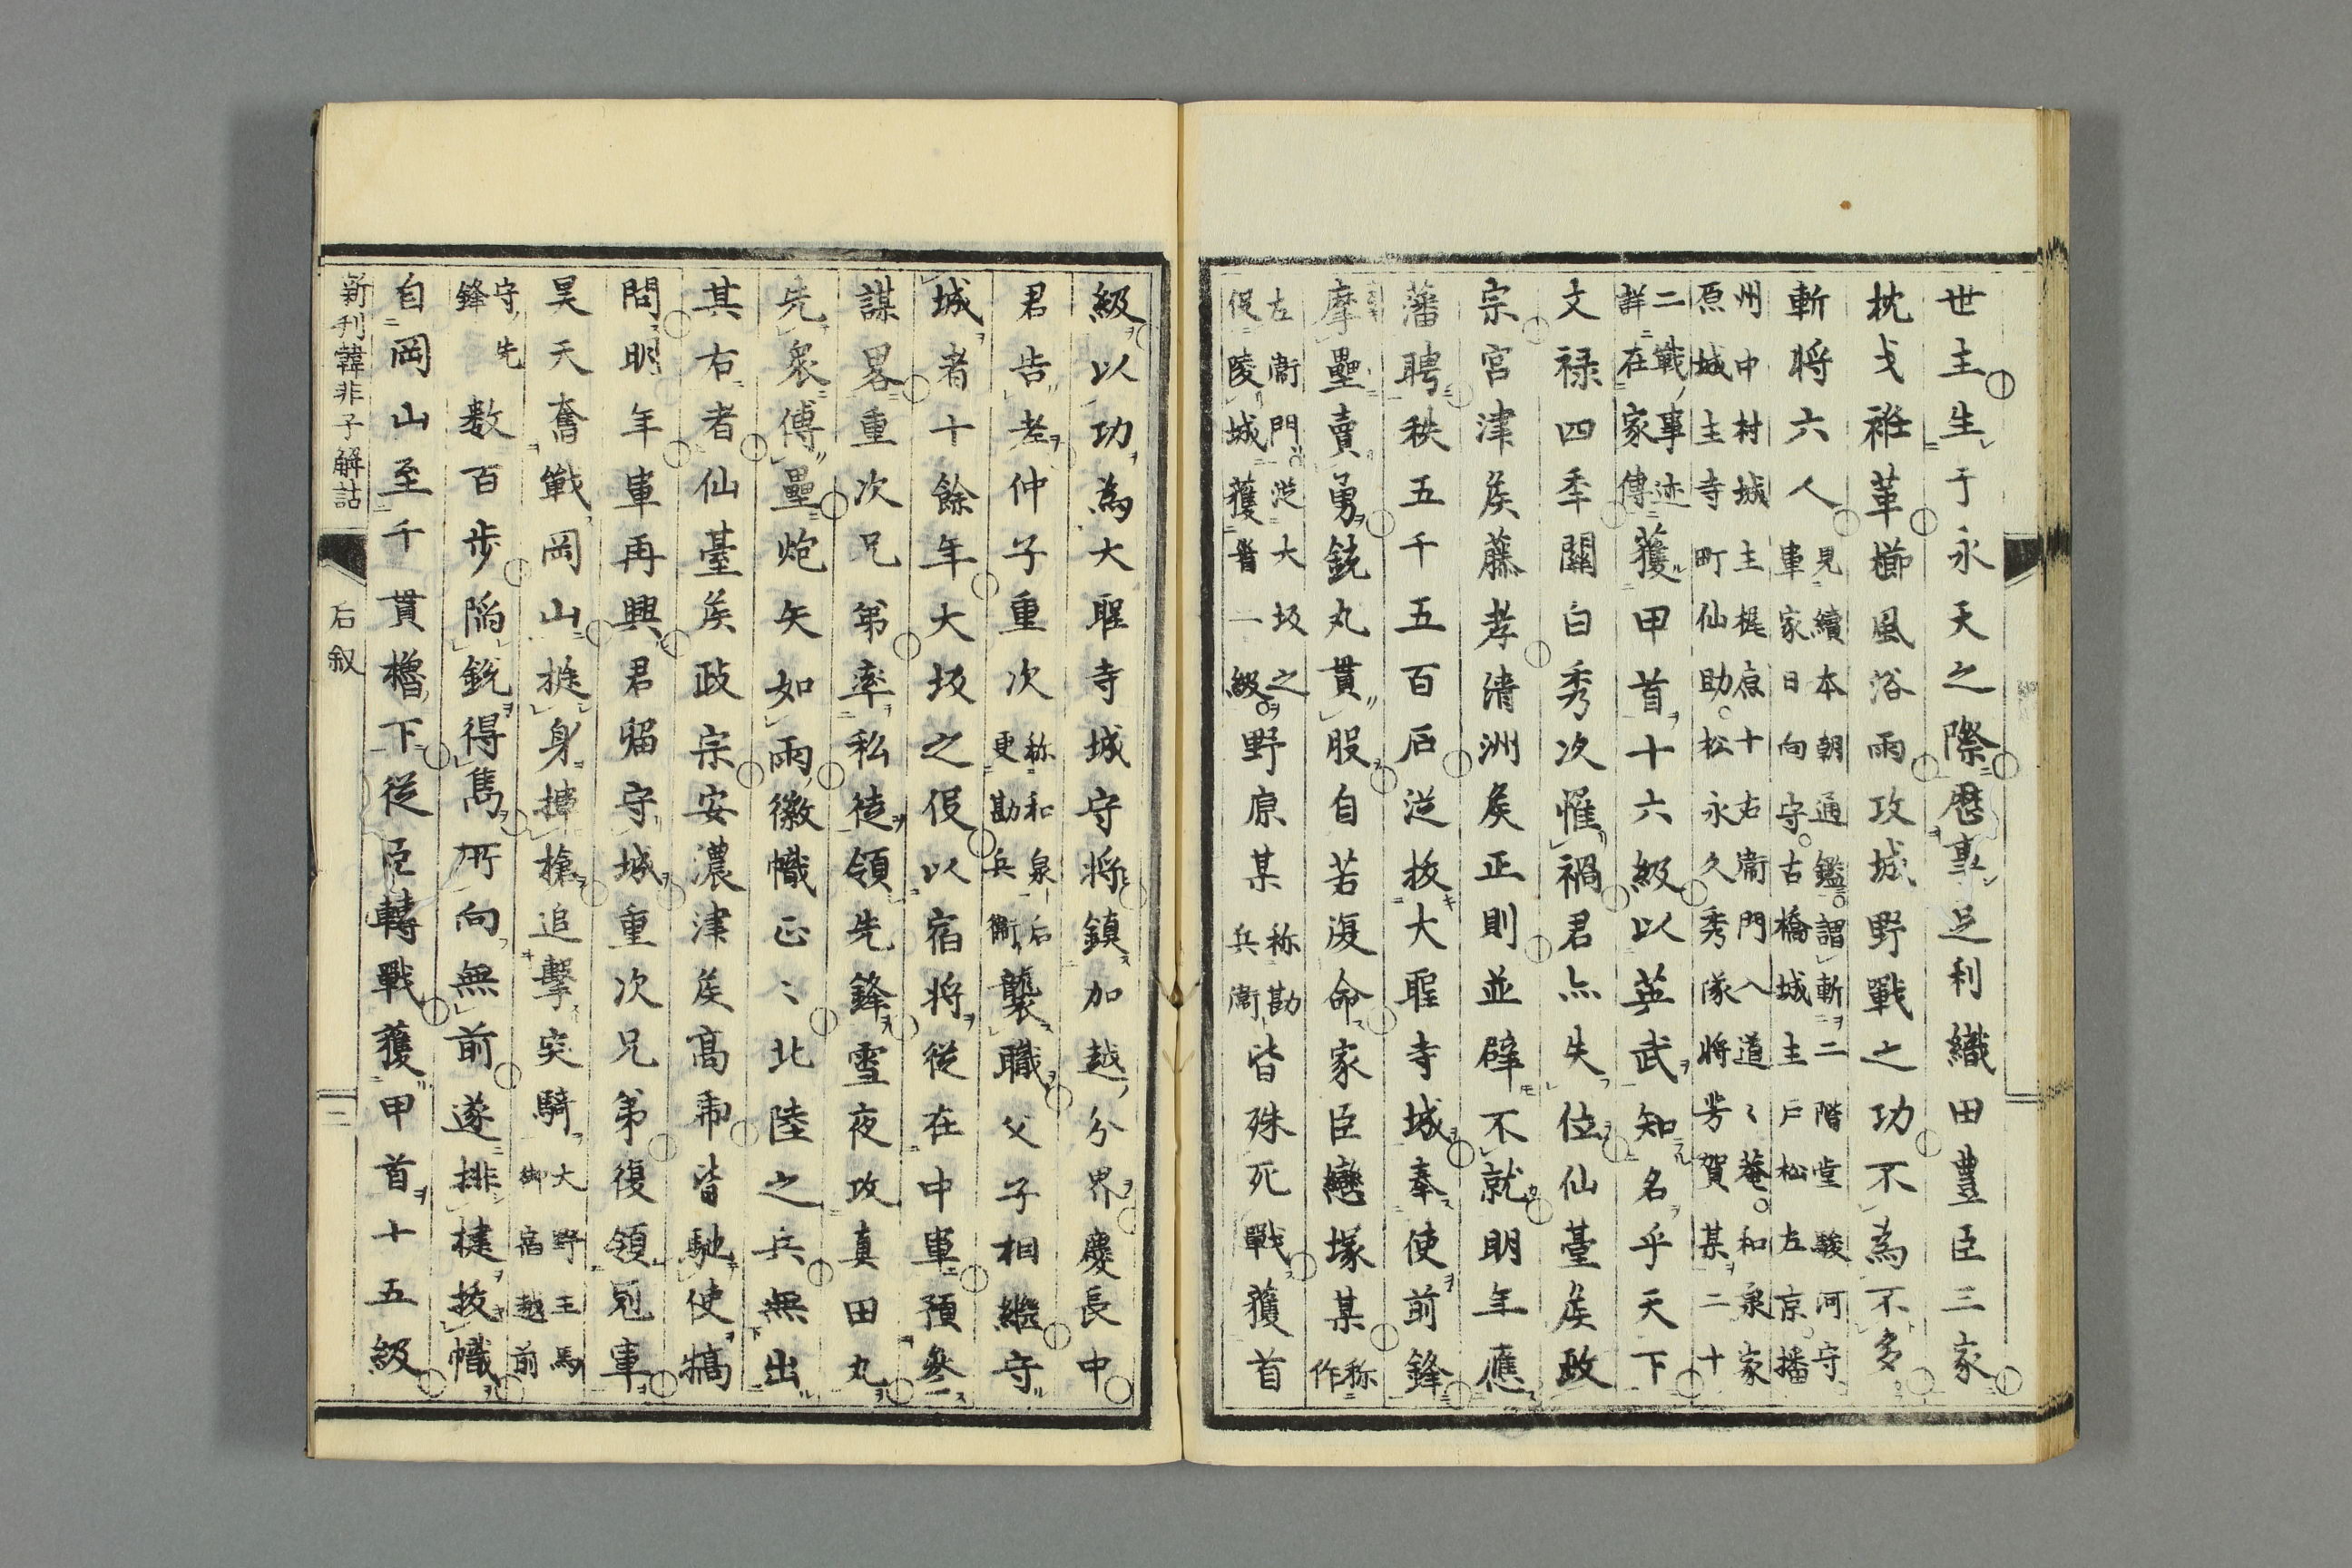 世主生于永天之際歴事足利織田豊臣三家
枕戈袵革櫛風浴雨攻城野戰之功不為不多
斬將六人
見續本朝通鑑謂斬二階堂駿河守
車家日向守古橋城主戸松左京播
州中村城主梶原十右衞門入道〻菴和泉家
原城主寺町仙助松永久秀隊將芳賀某二十
二戰事迹
詳在家傳
獲甲首十六級以英武知名乎天下
文禄四季關白秀次惟禍君亦失位仙臺矦政
宗宮津矦藤孝清洲矦正則並辟不就明年應
藩聘秩五千五百石從拔大聖寺城奉使前鋒
摩壘賣勇銃丸貫股自若復命家臣戀塚某
称
作
左衞門從大坂之
役陵城獲首一級
野原某
称勘
兵衞
皆殊死戰獲首
級以功為大聖寺城守將鎮加越分界慶長中
君告老仲子重次
称和泉后
更勘兵衞
襲職父子相繼守
城者十餘年大坂之役以宿將從在中軍預參
謀畧重次兄弟率私徒領先鋒雪夜攻真田丸
先衆傅壘炮矢如雨徽幟正〻北陸之兵無出
其右者仙臺矦政宗安濃津矦高乕皆馳使犒
問明年軍再興君留守城重次兄弟復領冠軍
昊天奮戰岡山挺身揮槍追擊突騎
大野主馬
御宿越前
守先
鋒
數百步陷銃得雋所向無前遂排揵拔幟
自岡山至千貫櫓下從臣轉戰獲甲首十五級
新刊韓非子解詁
后叙
二